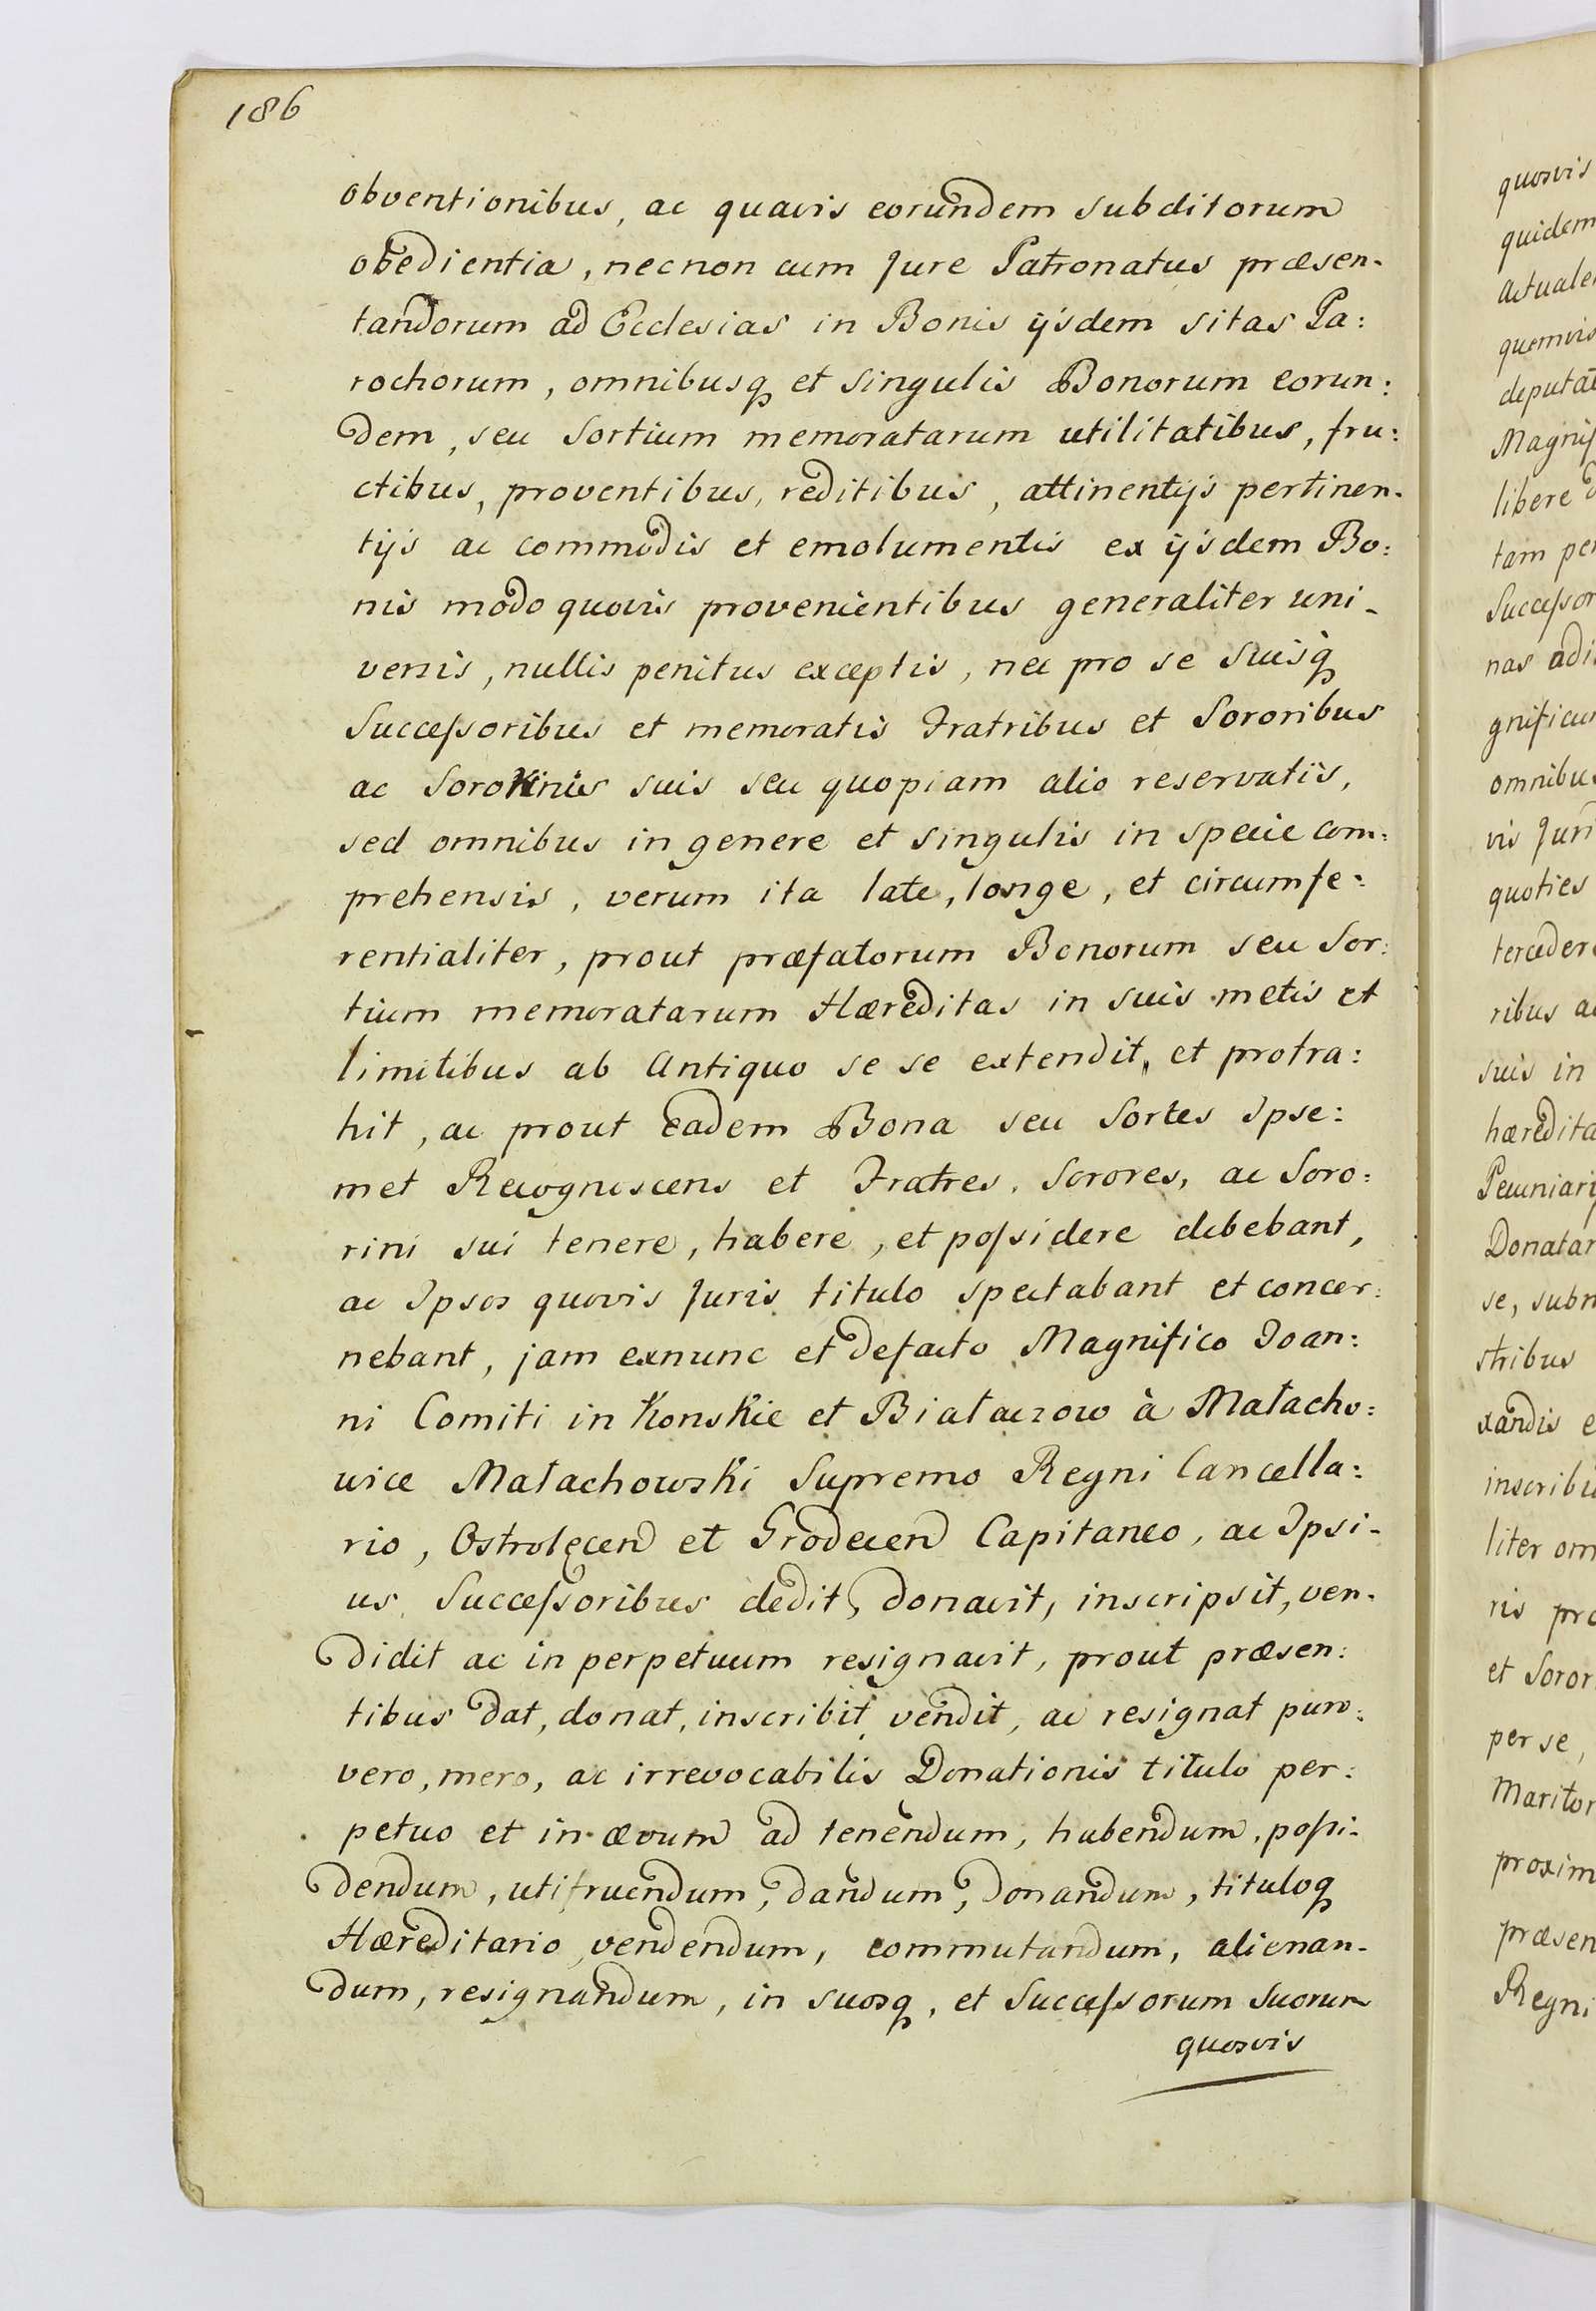 186
obventionibus, ac quavis eorundem subditorum
obedientia, necnon cum Jure Patronatus præsen-
tandorum ad Ecclesias in Bonis ijsdem sitas Pa:
rochorum, omnibusq et singulis Bonorum eorun:
dem, seu Sortium memoratarum utilitatibus, fru:
ctibus, proventibus, reditibus, attinentijs pertinen-
tijs ac commodis et emolumentis ex ijsdem Bo:
nis modo quovis provenientibus generaliter uni-
versis, nullis penitus exceptis, nec pro se suisq
Successoribus et memoratis Fratribus et Sororibus
ac Sororinis suis seu quopiam alio reservatis,
sed omnibus in genere et singulis in specie com:
prehensis, verum ita late, longe, et circumfe:
rentialiter, prout præfatorum Bonorum seu Sor:
tium memoratarum Hæreditas in suis metis et
limitibus ab Antiquo se se extendit, et protra:
hit, ac prout eadem Bona seu Sortes Ipse:
met Recognoscens et Fratres, Sorores, ac Soro:
rini sui tenere, habere, et possidere debebant,
ac Ipsos quovis Juris titulo spectabant et concer:
nebant, jam exnunc et defacto Magnifico Joan:
ni Comiti in Konskie et Białaczow à Małacho:
wice Małachowski Supremo Regni Cancella:
rio, Ostrolęcen et Grodecen Capitaneo, ac Ipsi-
us Successoribus dedit, donavit, inscripsit, ven-
didit ac in perpetuum resignavit, prout præsen:
tibus dat, donat, inscribit, vendit, ac resignat puro:
vero, mero, ac irrevocabilis Donationis titulo per:
petuo et in ævum ad tenendum, habendum, possi-
dendum, utifruendum, dandum, donandum, tituloq
Hæreditario vendendum, commutandum, alienan-
dum, resignandum, in suosq, et Successorum Suorum
quosvis
quosvis
quidem
actuale
quemvis
deputa
Magnif
libere
tam per
Successor
nas adi
gnificu
omnibu
vis Juri
quoties
terceder
ribus a
suis in
hæredita
Pecuniari
Donatar
se, subm
stribus
xandis e
inscribi
liter om
ris pro
et Soror
per se,
Maritor
proxim
præsen
Regni